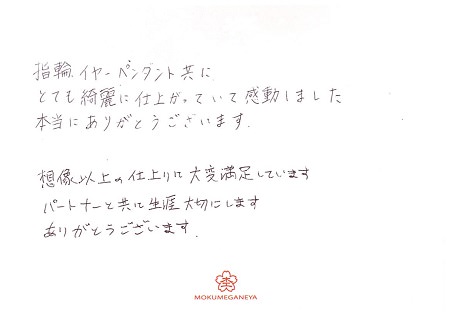 指輪、イヤーペンダント共に
とても綺麗に仕上がっていて感動しました
本当にありがとうございます.
想像以上の仕上りに大変満足しています
パートナーと共に生涯大切にします
ありがとうございます.
杢
MOKUMEGANEYA